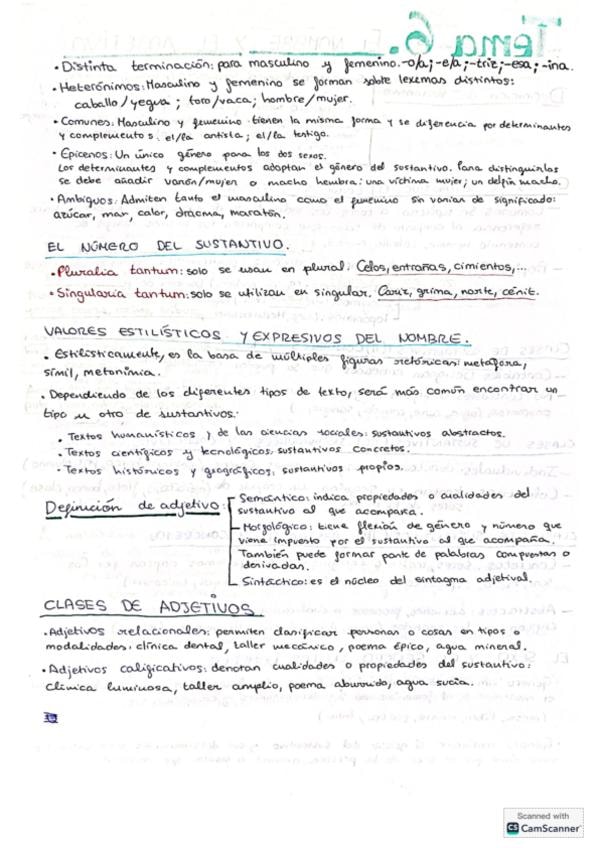 Tema 6.
• Distinta terminación: para masculino y femenino. -o/a; -e/a; -triz; -esa; -ina.
• Heterónimos: Masculino y femenino se forman sobre lexemas distintos:
caballo/yegua; toro/vaca; hombre/mujer.
• Comunes: Masculino y femenino tienen la misma forma y se diferencia por determinantes
y complementos: el/la artista; el/la testigo.
• Epicenos: Un único género para los dos sexos.
Los determinantes y complementos adoptan el género del sustantivo. Para distinguirlos
se debe añadir varón/mujer o macho hembra: una víctima mujer; un delfín macho.
• Ambiguos: Admiten tanto el masculino como el femenino sin variar de significado:
azúcar, mar, calor, dracma, maratón.
EL NÚMERO DEL SUSTANTIVO.
• Pluralia tantum: solo se usan en plural. Celos, entrañas, cimientos,...
• Singularia tantum: solo se utilizan en singular. Cariz, grima, norte, cénit.
VALORES ESTILÍSTICOS Y EXPRESIVOS DEL NOMBRE.
• Estilísticamente, es la base de múltiples figuras retóricas: metáfora,
símil, metonimia.
• Dependiendo de los diferentes tipos de texto, será más común encontrar un
tipo u otro de sustantivos:
• Textos humanísticos y de las ciencias sociales: sustantivos abstractos.
• Textos científicos y tecnológicos: sustantivos concretos.
• Textos históricos y geográficos: sustantivos propios.
Definición de adjetivo: Semántico: indica propiedades o cualidades del
sustantivo al que acompaña.
Morfológico: tiene flexión de género y número que
viene impuesto por el sustantivo al que acompaña.
También puede formar parte de palabras compuestas o
derivadas.
Sintáctico: es el núcleo del sintagma adjetival.
CLASES DE ADJETIVOS.
• Adjetivos relacionales: permiten clasificar personas o cosas en tipos o
modalidades: clínica dental, taller mecánico, poema épico, agua mineral.
• Adjetivos calificativos: denotan cualidades o propiedades del sustantivo:
Clínica luminosa, taller amplio, poema aburrido, agua sucia.
Scanned with
CS CamScanner